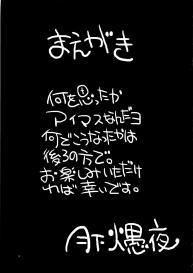 まえがき
何を思ったか
アイマスなんだヨ
何でこうなったかは
後3の方で。
お楽しみいただけ
れば幸いです。
月下爆夜